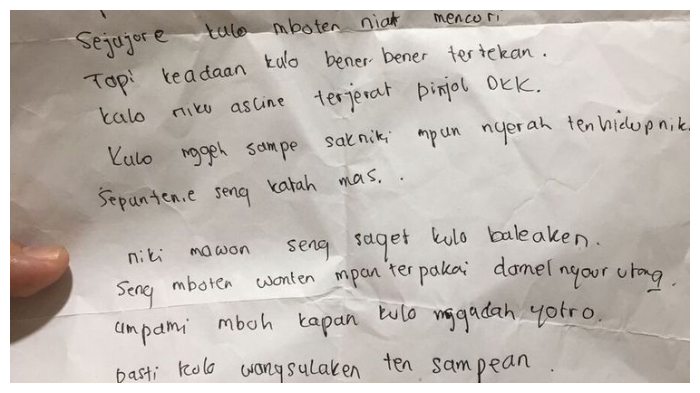 Sejajore kulo mboten niat mencuri
Tapi keadaan kulo bener-bener tertekan.
kalo niku asline terjerat pinjol OKK.
Kulo nggeh sampe sakniki mpun nyerah ten hidup nik.
Sepunten.e seng katah mas..
niki mawon seng saget kulo baleaken.
Seng mboten wonten mpan terpakai damel nyaur utang.
umpami mboh kapan kulo nggadah yotro.
pasti kulo wangsulaken ten sampean.